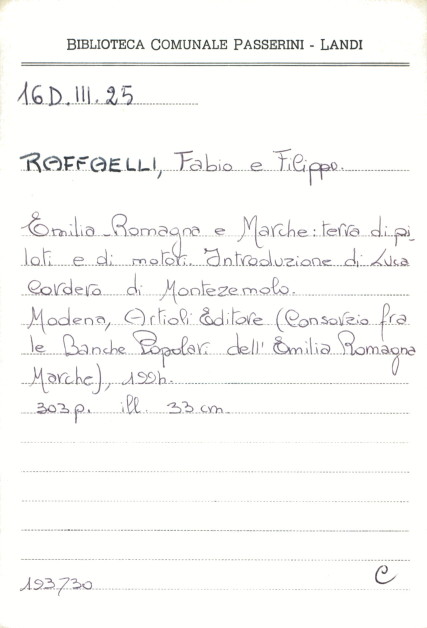 BIBLIOTECA COMUNALE PASSERINI - LANDI
16D.III.25
RAFFAELLI, Fabio e Filippo.
Emilia-Romagna e Marche: terra di pi
loti e di motori. Introduzione di Luca
Cordero di Montezemolo.
Modena, Artioli Editore (Consorzio fra
le Banche Popolari dell' Emilia Romagna
Marche), 1994.
303 p. ill. 33 cm.
193730 C